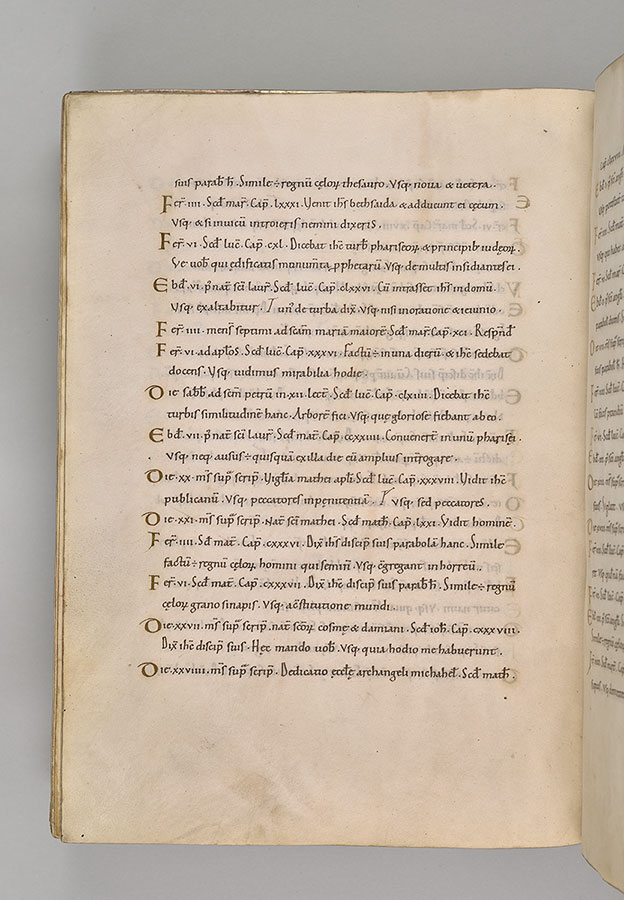 suis parab̄ h̄ . Simile ÷ regnū cęloꝝ thesauro . Vsq; noua & uetera .
Fer̄ . IIII . Scd̄ mar̄ . Cap̄ . Lxxxi . Venit ih̄s bethsaida & adducunt ei cęcum .
Vsq; & si in uicū introieris nemini dixeris .
Fer̄ . VI . Scd̄ luc̄ . Cap̄ . cxl . Dicebat ih̄c turb̄ phariseoꝝ & principib; iudęoꝝ .
Ve uob̄ qui ędificatis monum̄ta ꝓphetarū Vsq; de multis insidiantes ei .
Ebd̄ . VI . p̄ nat̄ sc̄i laur̄ . Scd̄ luc̄ . Cap̄ . clxxvi . Cū intrasset ih̄s in domū .
Vsq; exaltabitur . Tunc̄ de turba dix̄ . Vsq; nisi in oratione & ieiunio .
Fer̄ . IIII . mens̄ septimi ad sc̄am mariā maiorē . Scd̄ mar̄ . Cap̄ . xci . Respn̄d̄
Fer̄ . VI . ad aplōs . Scd̄ luc̄ . Cap̄ . xxxvi . Factū ÷ in una dierū & ih̄c sedebat
docens . Vsq; uidimus mirabilia hodie .
Die sabb̄ . ad sc̄m petrū in . xii . lect̄ . Scd̄ luc̄ . Cap̄ . clxiiii . Dicebat ih̄c
turbis similitudinē hanc . Arborē fici . Vsq; quę gloriose fiebant ab eo .
Ebd̄ . VII . p̄ nat̄ sc̄i laur̄ . Scd̄ mat̄ . Cap̄ . ccxxiiii . Conuener̄t in unū pharisei .
Vsq; neq; ausus ÷ quisquā ex illa die eū amplius int̄rogare .
Die . xx . m̄s sup̄ scrip̄ . Vigl̄ia mathei apl̄i . Scd̄ luc̄ . Cap̄ . xxxviii . Vidit ih̄c
publicanū . Vsq; peccatores in penitentiā . Vsq; sed peccatores .
Die . xxi . m̄s sup̄ scrip̄ . Nat̄ sc̄i mathei . Scd̄ math̄ . Cap̄ . lxxi . Vidit hominē .
Fer̄ . IIII . Scd̄ mat̄ . Cap̄ . cxxxvi . Dix̄ ih̄s discip̄ suis parabolā hanc . Simile
factū ÷ regnū cęloꝝ homini qui semin̄ . Vsq; c̄gregant in horreū .
Fer̄ . VI . Scd̄ mat̄ . Cap̄ . cxxxvii . Dix̄ ih̄c discip̄ suis parab̄ h̄ . Simile ÷ regnū
cęloꝝ grano sinapis . Vsq; a c̄stitutione mundi .
Die . xxvii . m̄s sup̄ scrip̄ . nat̄ sc̄oꝝ cosme & damiani . Scd̄ ioh̄ . Cap̄ . cxxxviii .
Dix̄ ih̄c discip̄ suis . Hęc mando uob̄ . Vsq; quia hodio me habuerunt .
Die . xxviiii . m̄s sup̄ scrip̄ . Dedicatio ęccl̄ę archangeli michahel̄ . Scd̄ math̄ .